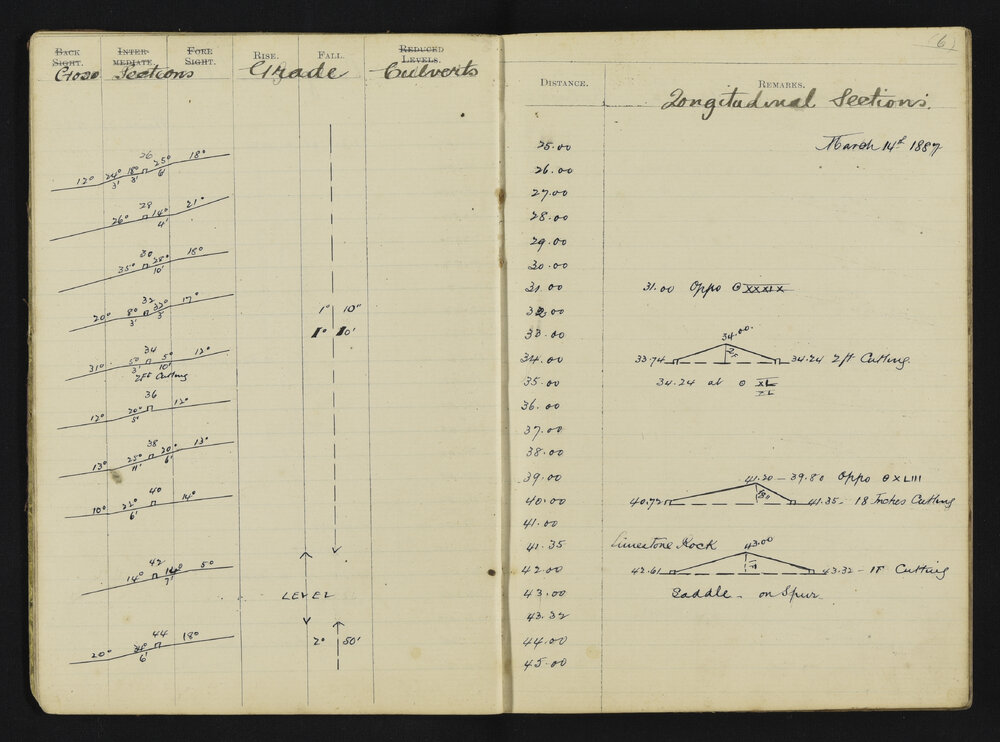 BACK SIGHT. INTER-MEDIATE. FORE SIGHT. RISE. FALL. REDUCED LEVELS.
Cross Sections Grade Culverts
26
12° 24° 18° 25° 18°
3' 3' 6'
28
26° 14° 21°
4'
30
35° 28° 18°
10'
32
20° 8° 33° 17°
3' 3'
1° 10"
1° 10'
34
31° 5° 5° 12°
3' 10'
2Ft Cutting
36
12° 20° 12°
5'
38
13° 25° 20° 13°
11' 6'
40
10° 22° 14°
6'
42
14° 14° 5°
7'
LEVEL
44
20° 18°
6'
2° 50'
(6)
DISTANCE. REMARKS.
Longitudinal Sections.
25.00 March 14th 1887
26.00
27.00
28.00
29.00
30.00
31.00 31.00 Oppo ⊙ XXXIX
32.00
33.00
34.00
34.00 33.74 2F 34.24 2ft Cutting
35.00 34.24 at ⊙ XL
XL
36.00
37.00
38.00
39.00 41.20 - 39.80 Oppo ⊙XLIII
40.00 40.72 18" 41.35 - 18 Inches Cutting
41.00
41.35 Limestone Rock 43.00
42.00 42.61 1F 43.32 - 1F Cutting
43.00 Saddle - on Spur
43.32
44.00
45.00